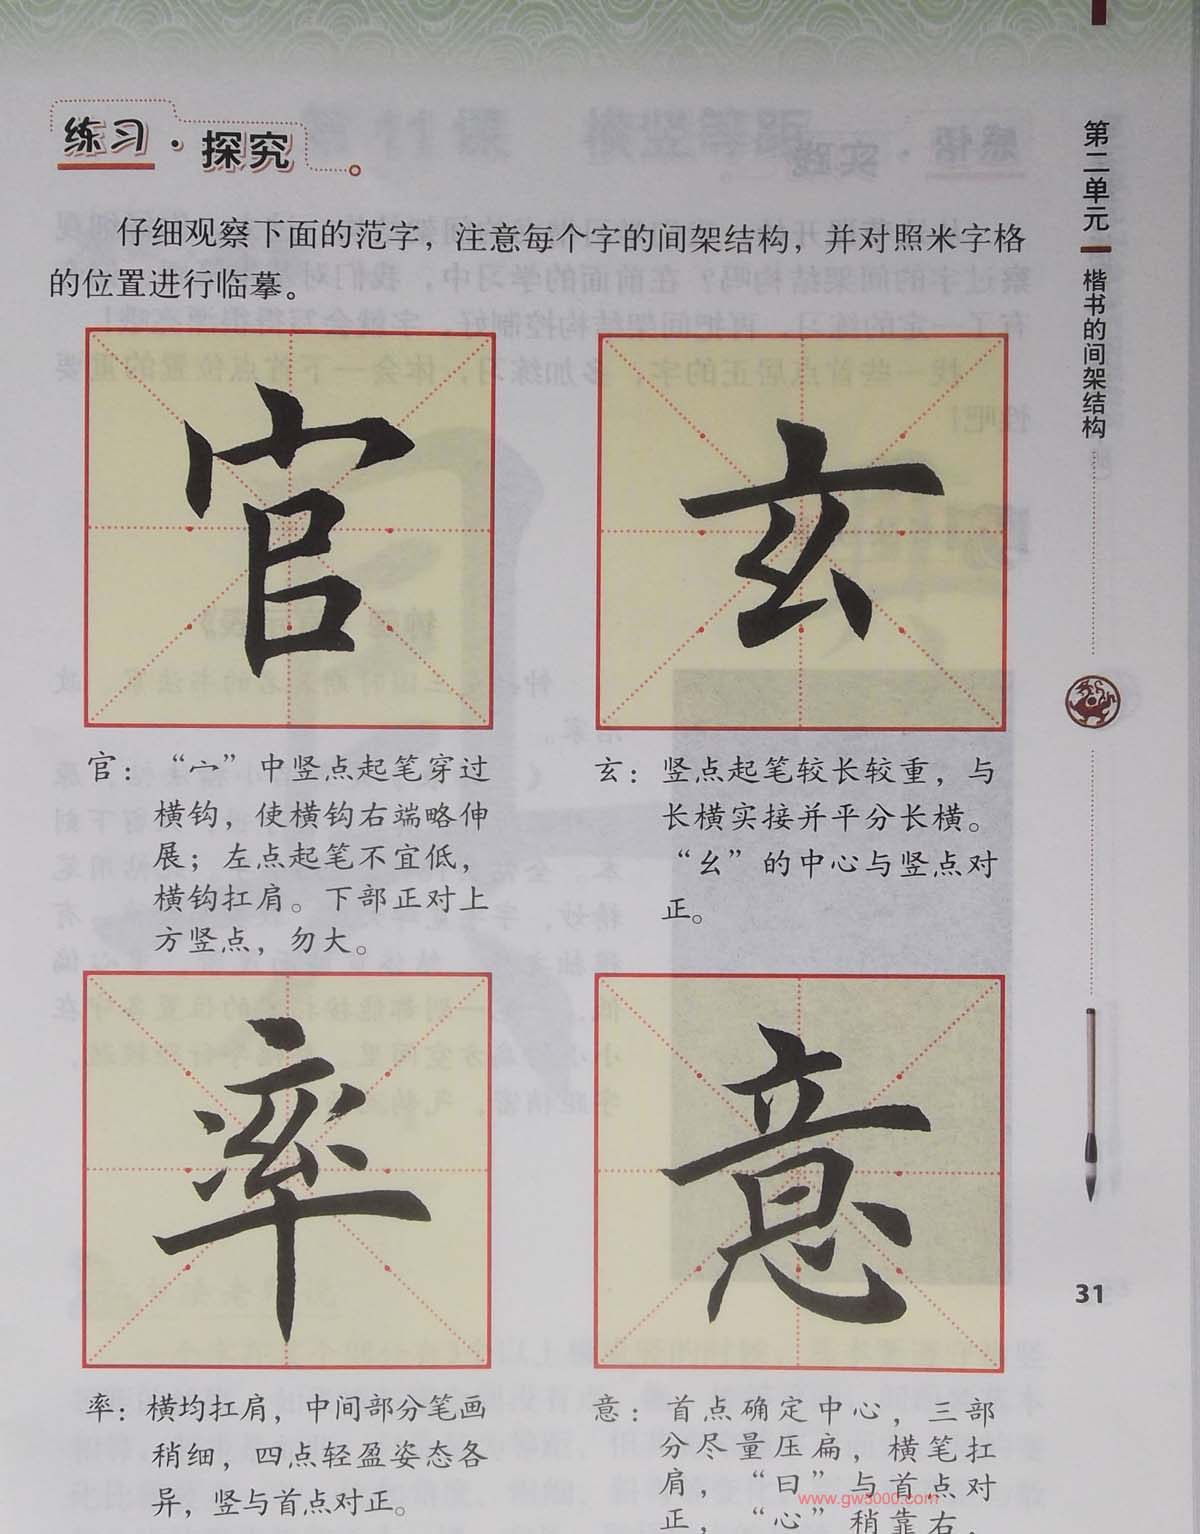 练习·探究
仔细观察下面的范字，注意每个字的间架结构，并对照米字格
的位置进行临摹。
官
玄
官：“宀”中竖点起笔穿过
横钩，使横钩右端略伸
展；左点起笔不宜低，
横钩扛肩。下部正对上
方竖点，勿大。
玄：竖点起笔较长较重，与
长横实接并平分长横。
“幺”的中心与竖点对
正。
率
意
率：横均扛肩，中间部分笔画
稍细，四点轻盈姿态各
异，竖与首点对正。
意：首点确定中心，三部
分尽量压扁，横笔扛
肩，“曰”与首点对
正，“心”稍靠右，
第二单元
楷书的间架结构
31
www.gw3000.com